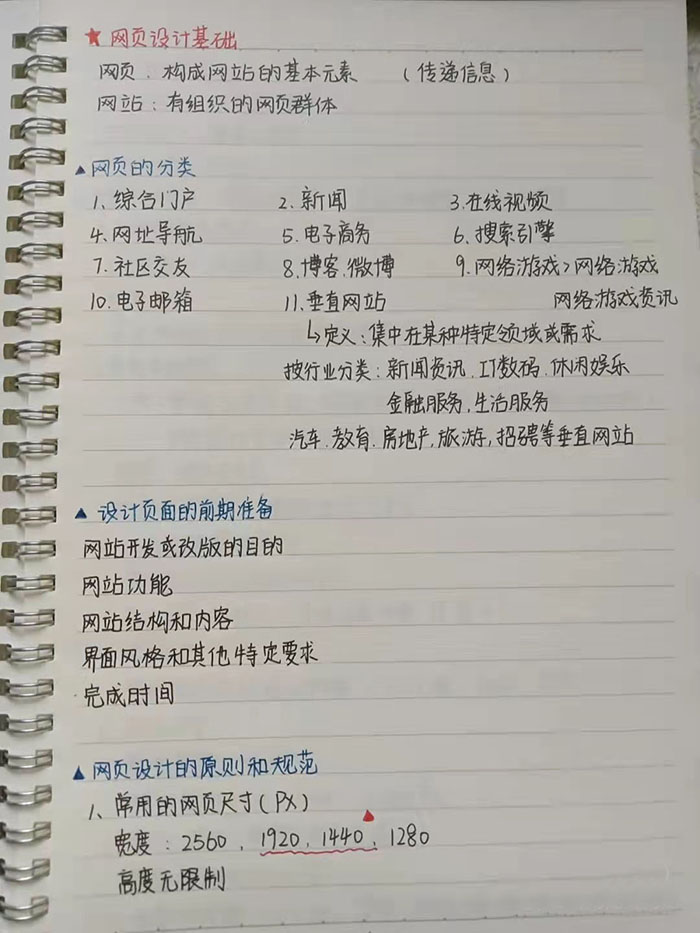 ★ 网页设计基础
网页：构成网站的基本元素 （传递信息）
网站：有组织的网页群体
▲网页的分类
1、综合门户 2、新闻 3、在线视频
4、网址导航 5、电子商务 6、搜索引擎
7、社区交友 8、博客、微博 9、网络游戏>网络游戏
10、电子邮箱 11、垂直网站 网络游戏资讯
↳定义：集中在某种特定领域或需求
按行业分类：新闻资讯、IT数码、休闲娱乐
金融服务、生活服务
汽车、教育、房地产，旅游，招聘等垂直网站
▲ 设计页面的前期准备
网站开发或改版的目的
网站功能
网站结构和内容
界面风格和其他特定要求
完成时间
▲ 网页设计的原则和规范
1、常用的网页尺寸（PX）
宽度：2560、1920、1440、1280
高度无限制